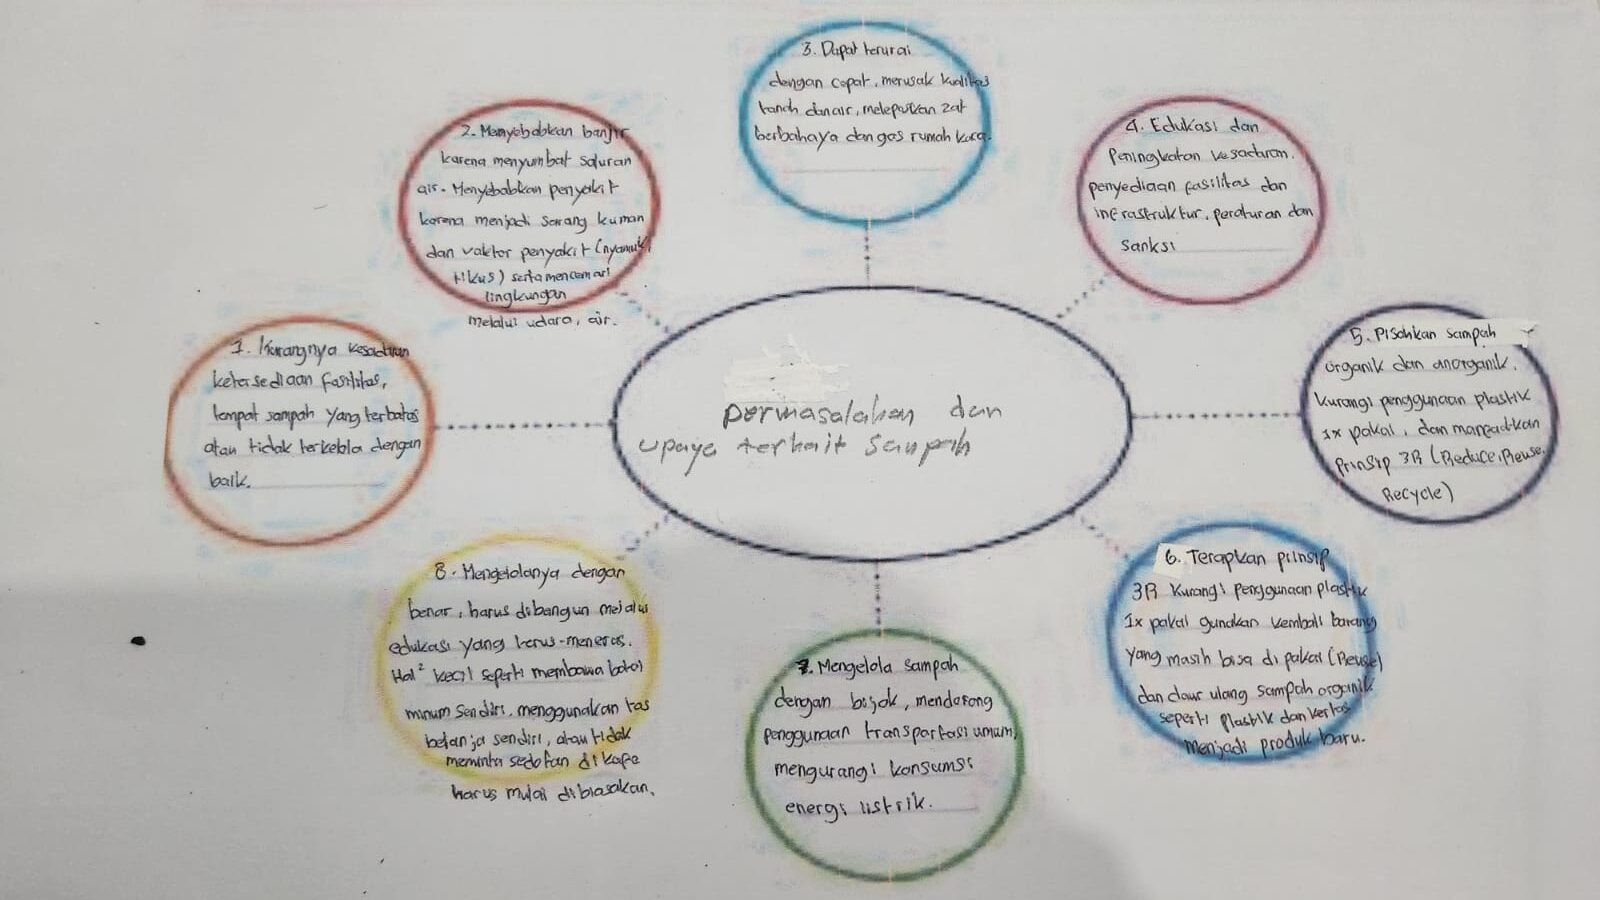 permasalahan dan
upaya terkait sampah
1. Kurangnya kesadaran
ketersediaan fasilitas,
tempat sampah yang terbatas
atau tidak terkelola dengan
baik.
2. Menyebabkan banjir
karena menyumbat saluran
air. Menyebabkan penyakit
karena menjadi sarang kuman
dan vaktor penyakit (nyamuk,
tikus) serta mencemari
lingkungan
melalui udara, air.
3. Dapat terurai
dengan cepat, merusak kualitas
tanah dan air, melepaskan zat
berbahaya dan gas rumah kaca.
4. Edukasi dan
Peningkatan kesadaran.
penyediaan fasilitas dan
infrastruktur, peraturan dan
sanksi
5. Pisahkan sampah
organik dan anorganik.
kurangi penggunaan plastik
1x pakai, dan
prinsip 3R (Reduce, Reuse,
Recycle)
6. Terapkan prinsip
3R kurangi penggunaan plastik
1x pakai gunakan kembali barang
yang masih bisa di pakai (Reuse)
dan daur ulang sampah organik
seperti plastik dan kertas
menjadi produk baru.
7. Mengelola sampah
dengan bijak, mendorong
penggunaan transportasi umum,
mengurangi konsumsi
energi listrik.
8. Mengelolanya dengan
benar, harus dibangun melalui
edukasi yang terus-menerus.
Hal² kecil seperti membawa botol
minum sendiri, menggunakan tas
belanja sendiri, atau tidak
meminta sedotan di kafe
harus mulai dibiasakan.